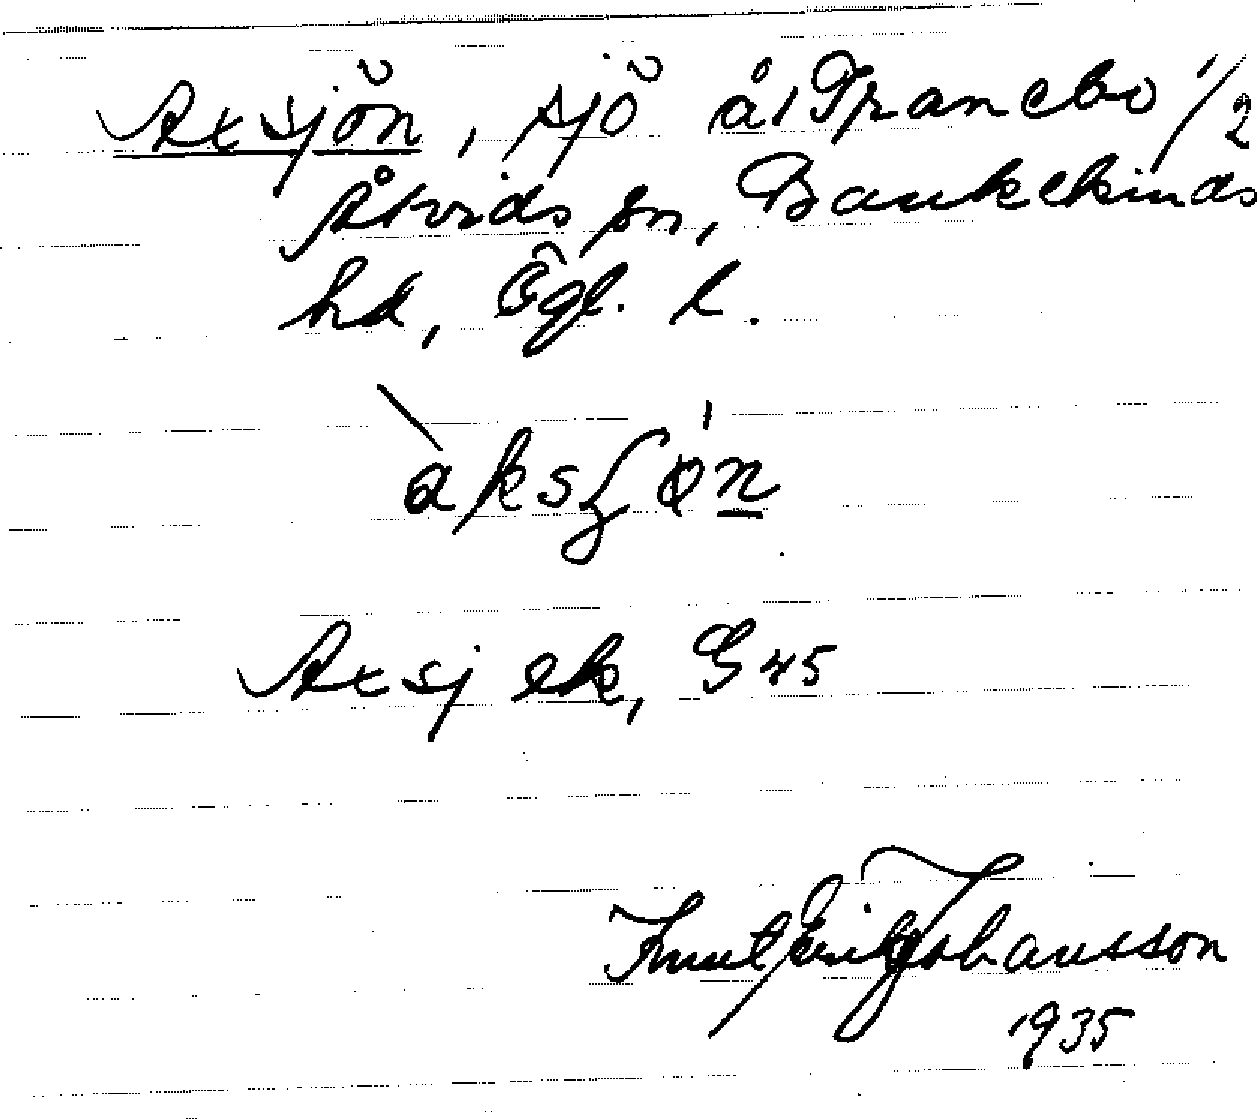 Axsjön, sjö å 1 Tranebo 1/2
Åtvids sn, Bankekinds
hd, Ögl. l.
Axsj ek, G 45
Knut Erik Johansson
1935